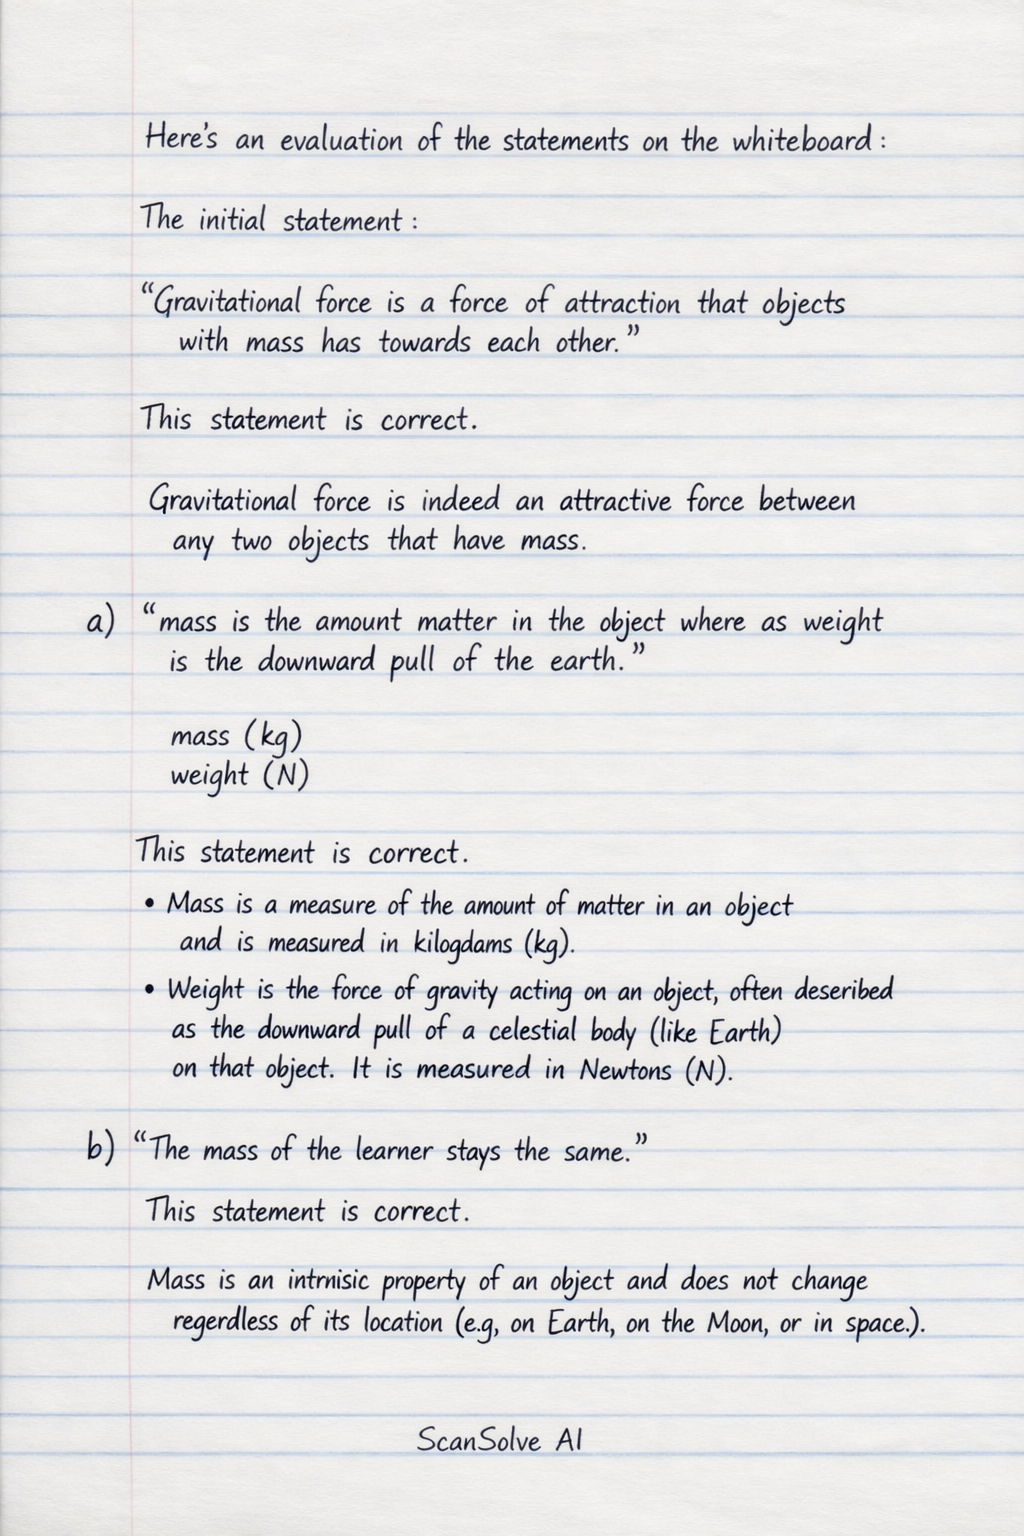 Here's an evaluation of the statements on the whiteboard :
The initial statement :
“Gravitational force is a force of attraction that objects
with mass has towards each other.”
This statement is correct.
Gravitational force is indeed an attractive force between
any two objects that have mass.
a) “mass is the amount matter in the object where as weight
is the downward pull of the earth.”
mass (kg)
weight (N)
This statement is correct.
• Mass is a measure of the amount of matter in an object
and is measured in kilogdams (kg).
• Weight is the force of gravity acting on an object, often deseribed
as the downward pull of a celestial body (like Earth)
on that object. It is measured in Newtons (N).
b) “The mass of the learner stays the same.”
This statement is correct.
Mass is an intrnisic property of an object and does not change
regerdless of its location (e.g, on Earth, on the Moon, or in space.).
ScanSolve AI